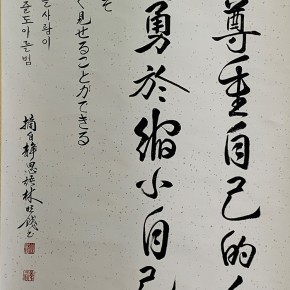 尊重自己的人
勇於縮小自己
そ
く見せることができる
는 사람이
줄도 아는 법
摘自靜思語林